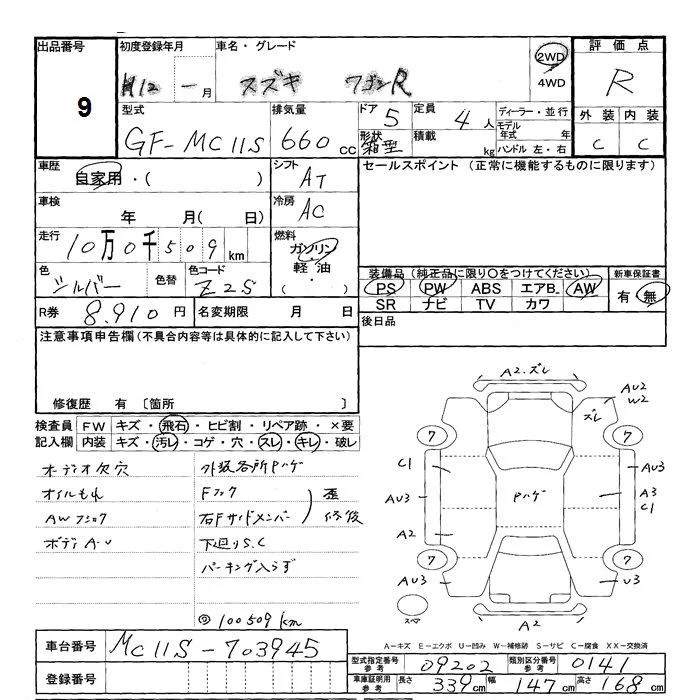 出品番号 初度登録年月 車名・グレード 2WD 4WD 評価点
9 H12 - 月 スズキ ワゴンR R
型式 排気量 ドア 5 定員 4人 ディーラー・並行 外装 内装
GF-MC11S 660cc 形状 箱型 積載 kg モデル年式 年 ハンドル 左・右 C C
車歴 自家用・( ) シフト AT セールスポイント (正常に機能するものに限ります)
車検 年 月( 日) 冷房 AC
走行 10万0千509km 燃料 ガソリン・軽油・( )
色 シルバー 色替 色コード Z2S
装備品 (純正品に限り〇をつけてください) 新車保証書
PS PW ABS エアB. AW 有・無
SR ナビ TV カワ
R券 8,910円 名変期限 月 日 後日品
注意事項申告欄(不具合内容等は具体的に記入して下さい)
修復歴 有 〔箇所 〕
検査員 FW キズ・飛石・ヒビ割・リペア跡・×要
記入欄 内装 キズ・汚レ・コゲ・穴・スレ・キレ・破レ
オーディオ欠穴 外装各所Pハゲ
オイルもれ Fフック
石Fサイドメンバー 歪 修復
ボディA-U 下廻りS.C
パーキング入らず
100509km
A2.ズレ
AU2
W2
ズレ
7 7
C1 AU3
AU3 Pハゲ A3
C1
A2
7 7
AU3 U3
A2
A-キズ E-エクボ U-凹み W-補修跡 S-サビ C-腐食 XX-交換済
車台番号 MC11S-703945
登録番号
型式指定番号 参考 09202 類別区分番号 参考 0141
車庫証明用 参考 長さ 339cm 幅 147cm 高さ 168cm